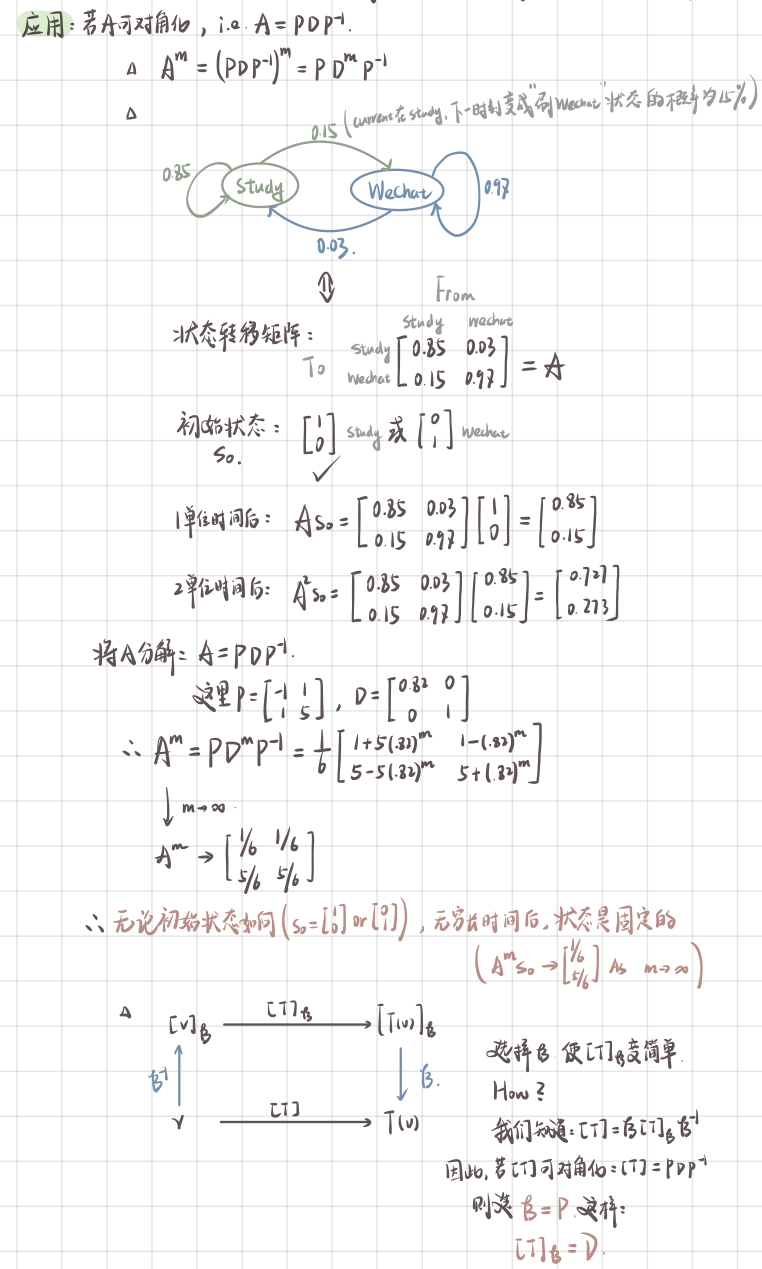 应用：若A可对角化，i.e. A = PDP⁻¹.
△ Aᵐ = (PDP⁻¹)ᵐ = P Dᵐ P⁻¹
△
0.15 (current在study, 下一时刻变成"刷Wechat"状态的概率为15%)
0.85 Study Wechat 0.97
0.03.
⇕
From
study wechat
状态转移矩阵：
To study [0.85 0.03] = A
wechat [0.15 0.97]
初始状态： [1 0] study 或 [0 1] wechat
S₀. ✓
1单位时间后： AS₀ = [0.85 0.03; 0.15 0.97] [1; 0] = [0.85; 0.15]
2单位时间后： A²S₀ = [0.85 0.03; 0.15 0.97] [0.85; 0.15] = [0.727; 0.273]
将A分解：A = PDP⁻¹.
这里P = [-1 1; 1 5], D = [0.82 0; 0 1]
∴ Aᵐ = PDᵐP⁻¹ = 1/6 [1+5(.82)ᵐ 1-(.82)ᵐ; 5-5(.82)ᵐ 5+(.82)ᵐ]
↓ m→∞.
Aᵐ → [1/6 1/6; 5/6 5/6]
∴ 无论初始状态如何 (S₀ = [1; 0] or [0; 1]), 无穷长时间后, 状态是固定的
(AᵐS₀ → [1/6; 5/6] As m→∞)
△ [v]_B [T]_B → [T(v)]_B
B⁻¹ ↑ ↓ B.
v [T] → T(v)
选择B 使[T]_B变简单.
How?
我们知道：[T] = B[T]_B B⁻¹
因此, 若[T]可对角化：[T] = PDP⁻¹
则选 B = P. 这样：
[T]_B = D.